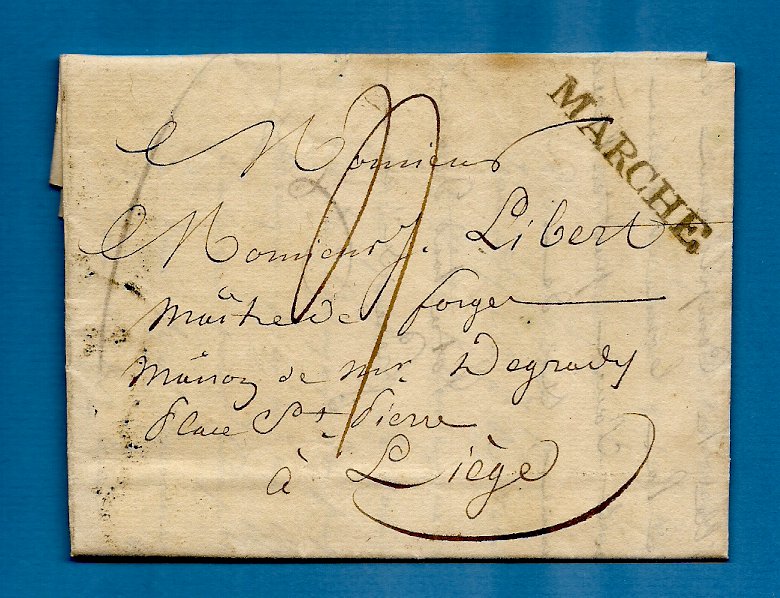 MARCHE
Monsieur
Monsieur J. Libert
Maitre de forges
Maison de mr. Degrady
place St. Pierre
à Liège